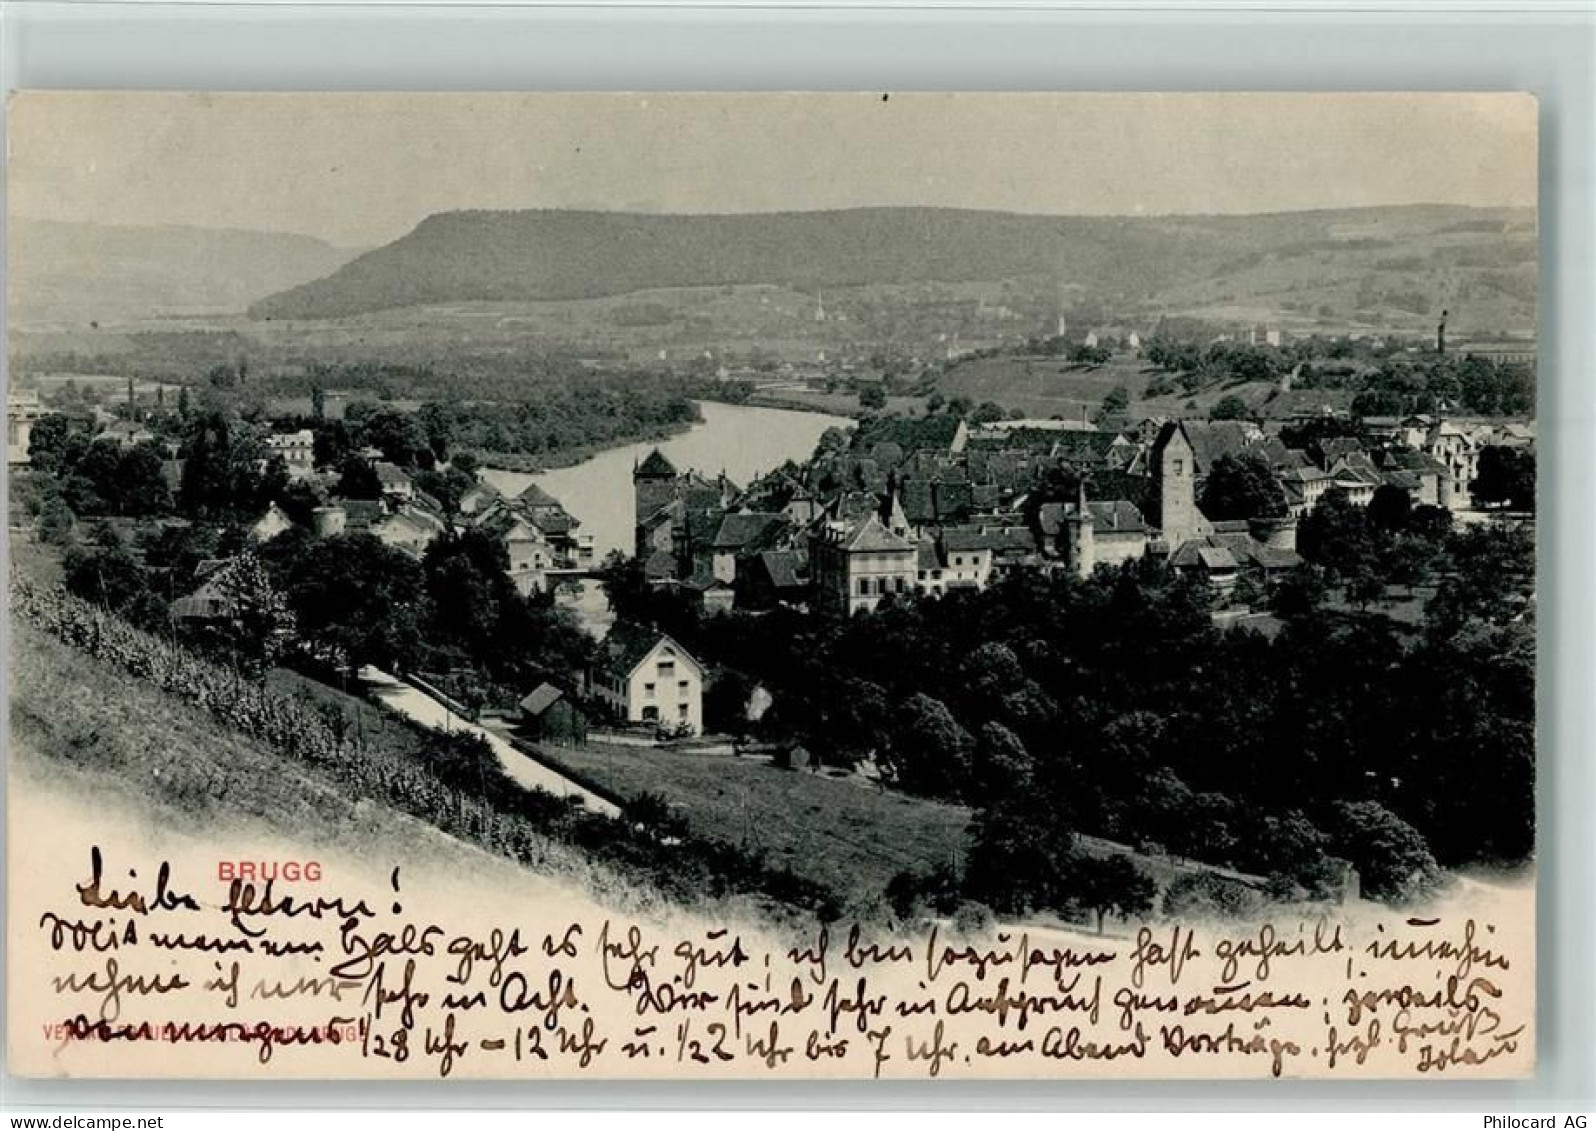 BRUGG
Liebe Eltern!
Mit meinem Hals geht es sehr gut, ich bin sozusagen fast geheilt, immerhin
nehme ich mir sehr in Acht. Wir sind sehr in Anspruch genommen; jeweils
von morgens 1/28 Uhr – 12 Uhr u. 1/22 Uhr bis 7 Uhr, am Abend Vorträge. herzl. Gruß
VERLAG BRUGG
Philocard AG